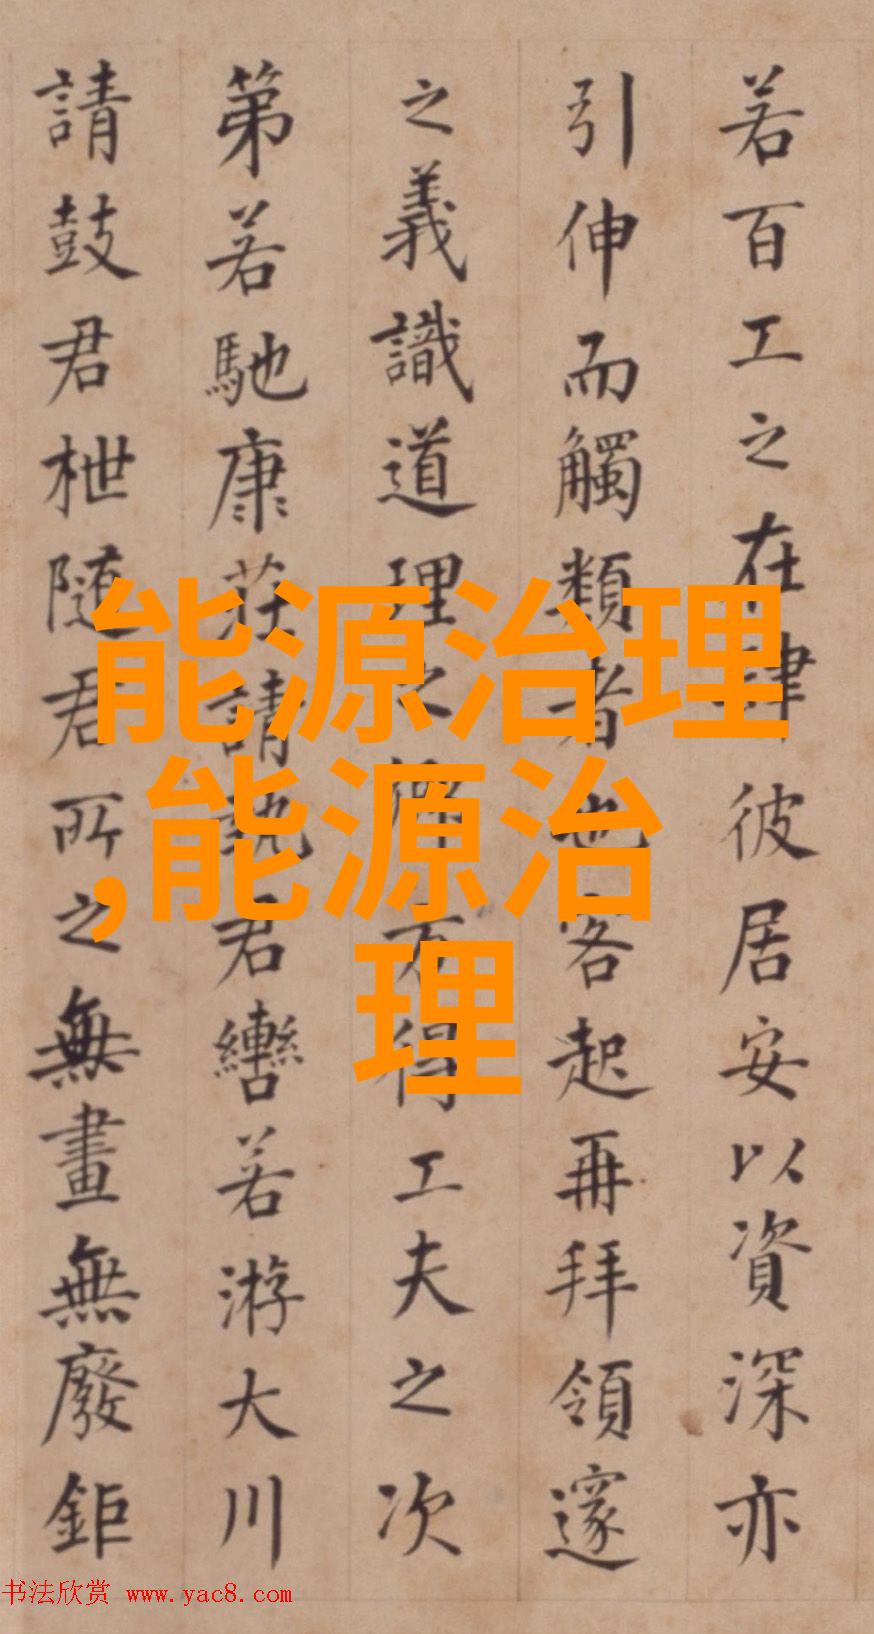 若百工之在肆彼居安以資深亦
引伸而觸類者也客起再拜領邃
之義識道理之得工夫之次
第若馳康莊請執君轡若游大川
請鼓君枻隨君所之無畫無廢鉅
能源治理
,能源治
理
书法欣赏 www.yac8.com